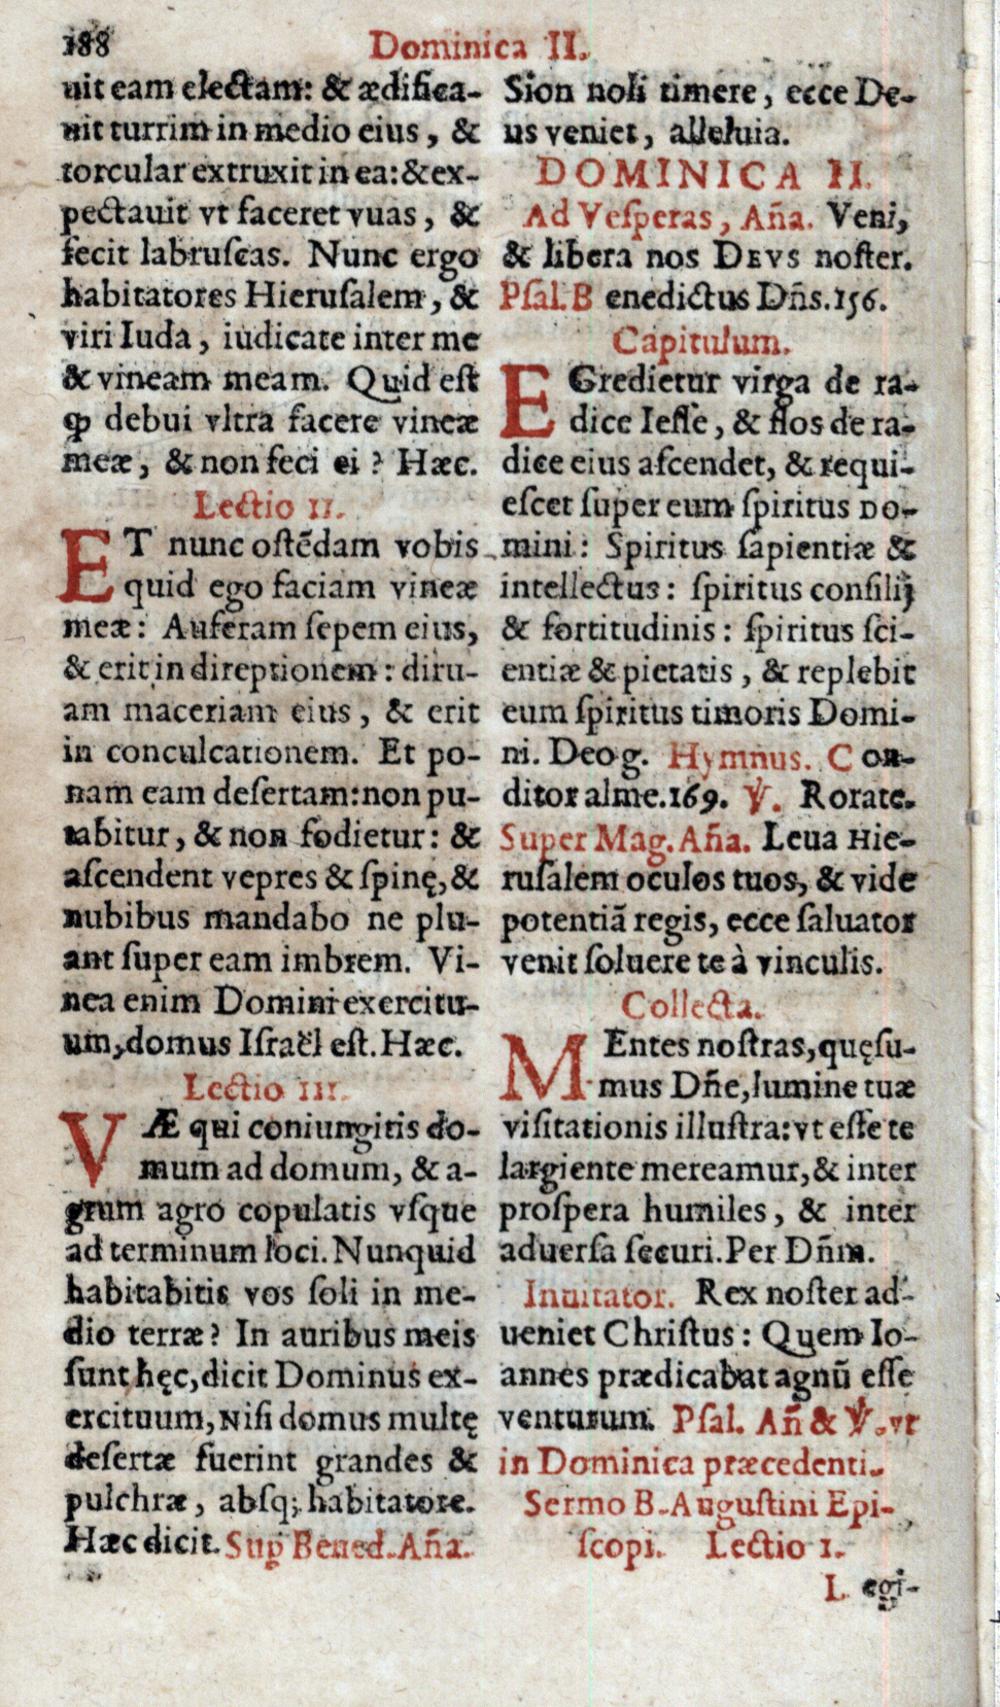 188
Dominica II.
uit eam electam: & ædifica-
uit turrim in medio eius, &
torcular extruxit in ea: & ex-
pectauit vt faceret vuas, &
fecit labruſcas. Nunc ergo
habitatores Hieruſalem, &
viri Iuda, iudicate inter me
& vineam meam. Quid eſt
ꝙ debui vltra facere vineæ
meæ, & non feci ei? Hæc.
Lectio II.
ET nunc oſtẽdam vobis
quid ego faciam vineæ
meæ: Auferam ſepem eius,
& erit in direptionem: diru-
am maceriam eius, & erit
in conculcationem. Et po-
nam eam deſertam: non pu-
tabitur, & non fodietur: &
aſcendent vepres & ſpinę, &
nubibus mandabo ne plu-
ant ſuper eam imbrem. Vi-
nea enim Domini exercitu-
um, domus Iſraël eſt. Hæc.
Lectio III.
VÆ qui coniungitis do-
mum ad domum, & a-
grum agro copulatis vſque
ad terminum loci. Nunquid
habitabitis vos ſoli in me-
dio terræ? In auribus meis
ſunt hęc, dicit Dominus ex-
ercituum, Niſi domus multę
deſertæ fuerint grandes &
pulchræ, abſq; habitatore.
Hæc dicit. Sup Bened. Añа.
Sion noli timere, ecce De-
us veniet, alleluia.
DOMINICA II.
Ad Veſperas, Aña. Veni,
& libera nos DEVS noſter.
Pſal. Benedictus Dñs. 156.
Capitulum.
EGredietur virga de ra-
dice Ieſſe, & flos de ra-
dice eius aſcendet, & requi-
eſcet ſuper eum ſpiritus DO-
mini: Spiritus ſapientiæ &
intellectus: ſpiritus conſilij
& fortitudinis: ſpiritus ſci-
entiæ & pietatis, & replebit
eum ſpiritus timoris Domi-
ni. Deo g. Hymnus. Con-
ditor alme. 169. ℣. Rorate.
Super Mag. Aña. Leua Hie-
ruſalem oculos tuos, & vide
potentiã regis, ecce ſaluator
venit ſoluere te à vinculis.
Collecta.
MEntes noſtras, quęſu-
mus Dñe, lumine tuæ
viſitationis illuſtra: vt eſſe te
largiente mereamur, & inter
proſpera humiles, & inter
aduerſa ſecuri. Per Dñm.
Inuitator. Rex noſter ad-
ueniet Chriſtus: Quem Io-
annes prædicabat agnũ eſſe
venturum. Pſal. Añ & ℣. vt
in Dominica præcedenti.
Sermo B. Auguſtini Epi-
ſcopi. Lectio I.
Legi-